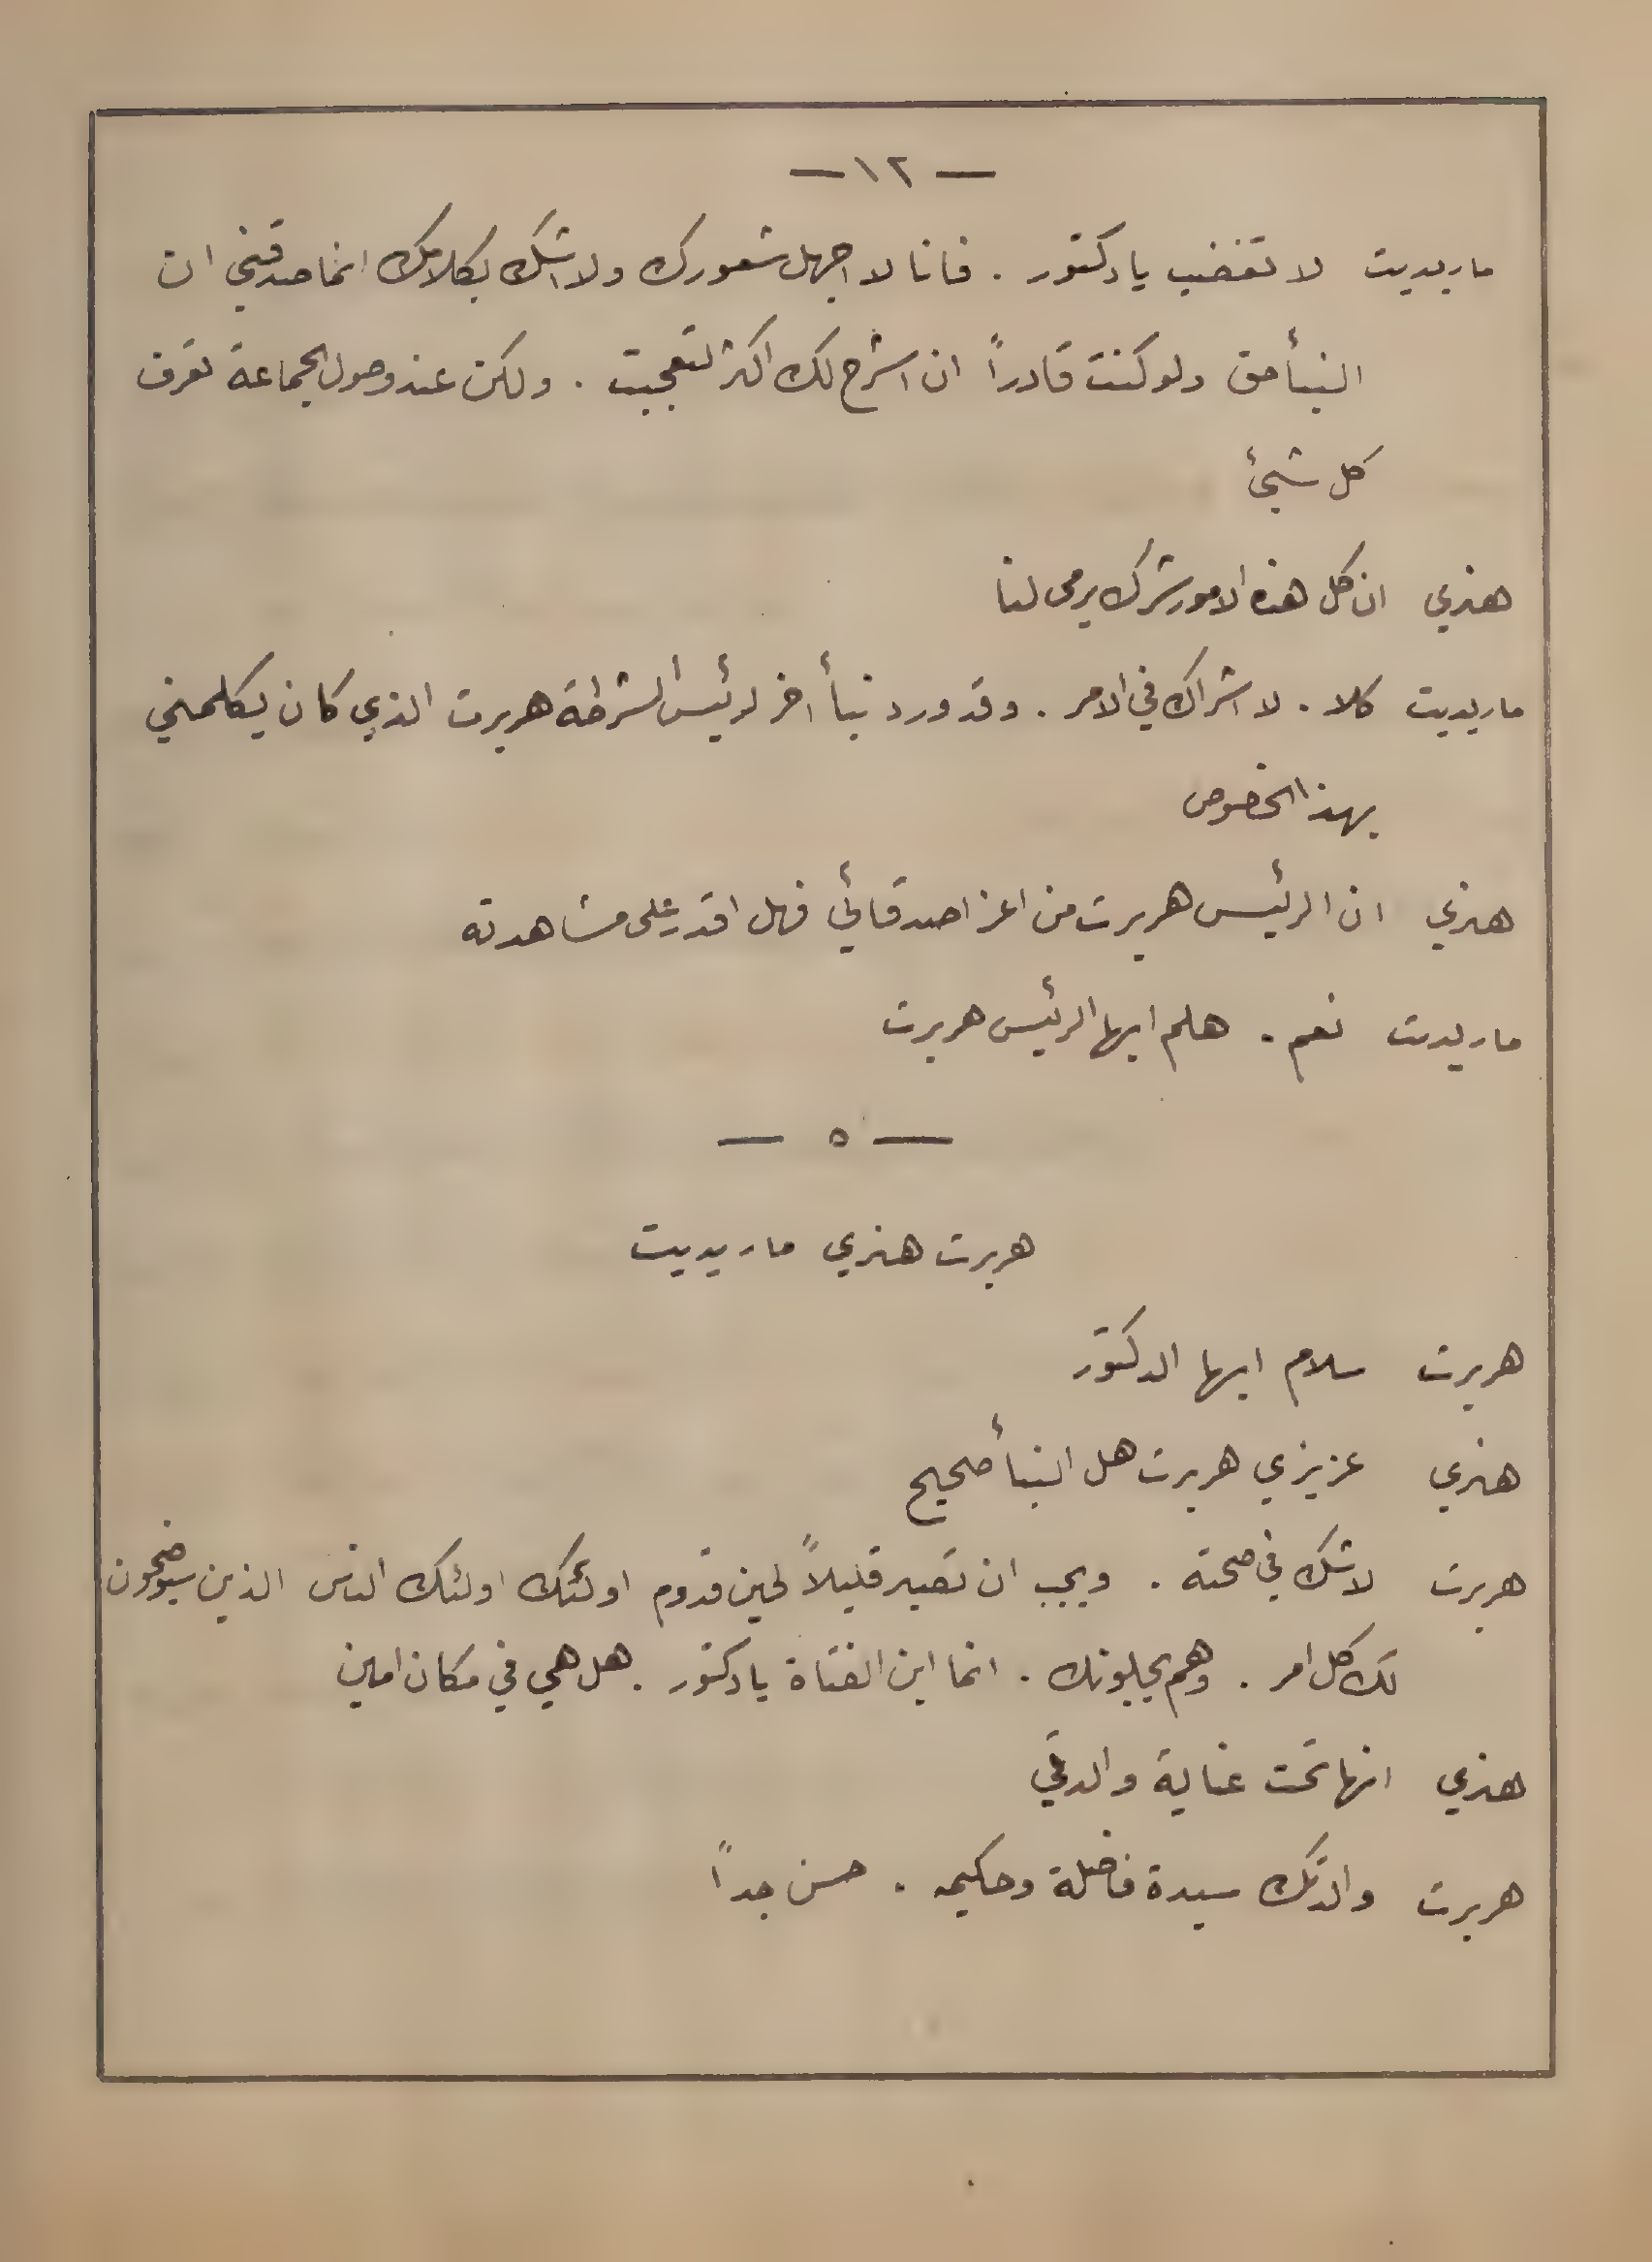 — ١٢ —
ماريديت لا تغضب يا دكتور . فانا لا اجهل شعورك ولا اشك بكلامك انما صدقني ان
النبأ حق ولو كنت قادراً ان اشرح لك اكثر لتعجبت . ولكن عند وصول الجماعة تعرف
كل شيئ
هنري ان كل هذه الامور شرك يرمى لنا
ماريديت كلا . لا اشراك في الامر . وقد ورد نبأ اخر لرئيس الشرطة هربرت الذي كان يكلمني
بهذا الخصوص
هنري ان الرئيس هربرت من اعز اصدقائي فهل اقدر على مشاهدته
ماريديت نعم . هلم ايها الرئيس هربرت
— ٥ —
هربرت هنري ماريديت
هربرت سلام ايها الدكتور
هنري عزيزي هربرت هل النبأ صحيح
هربرت لا شك في صحته . ويجب ان تصبر قليلاً لحين قدوم اولئك اولئك الناس الذين سيوضحون
لك كل امر . وهم يحبونك . انما اين الفتاة يا دكتور . هل هي في مكان امين
هنري انها تحت عناية والدتي
هربرت والدتك سيدة فاضلة وحكيمه . حسن جداً